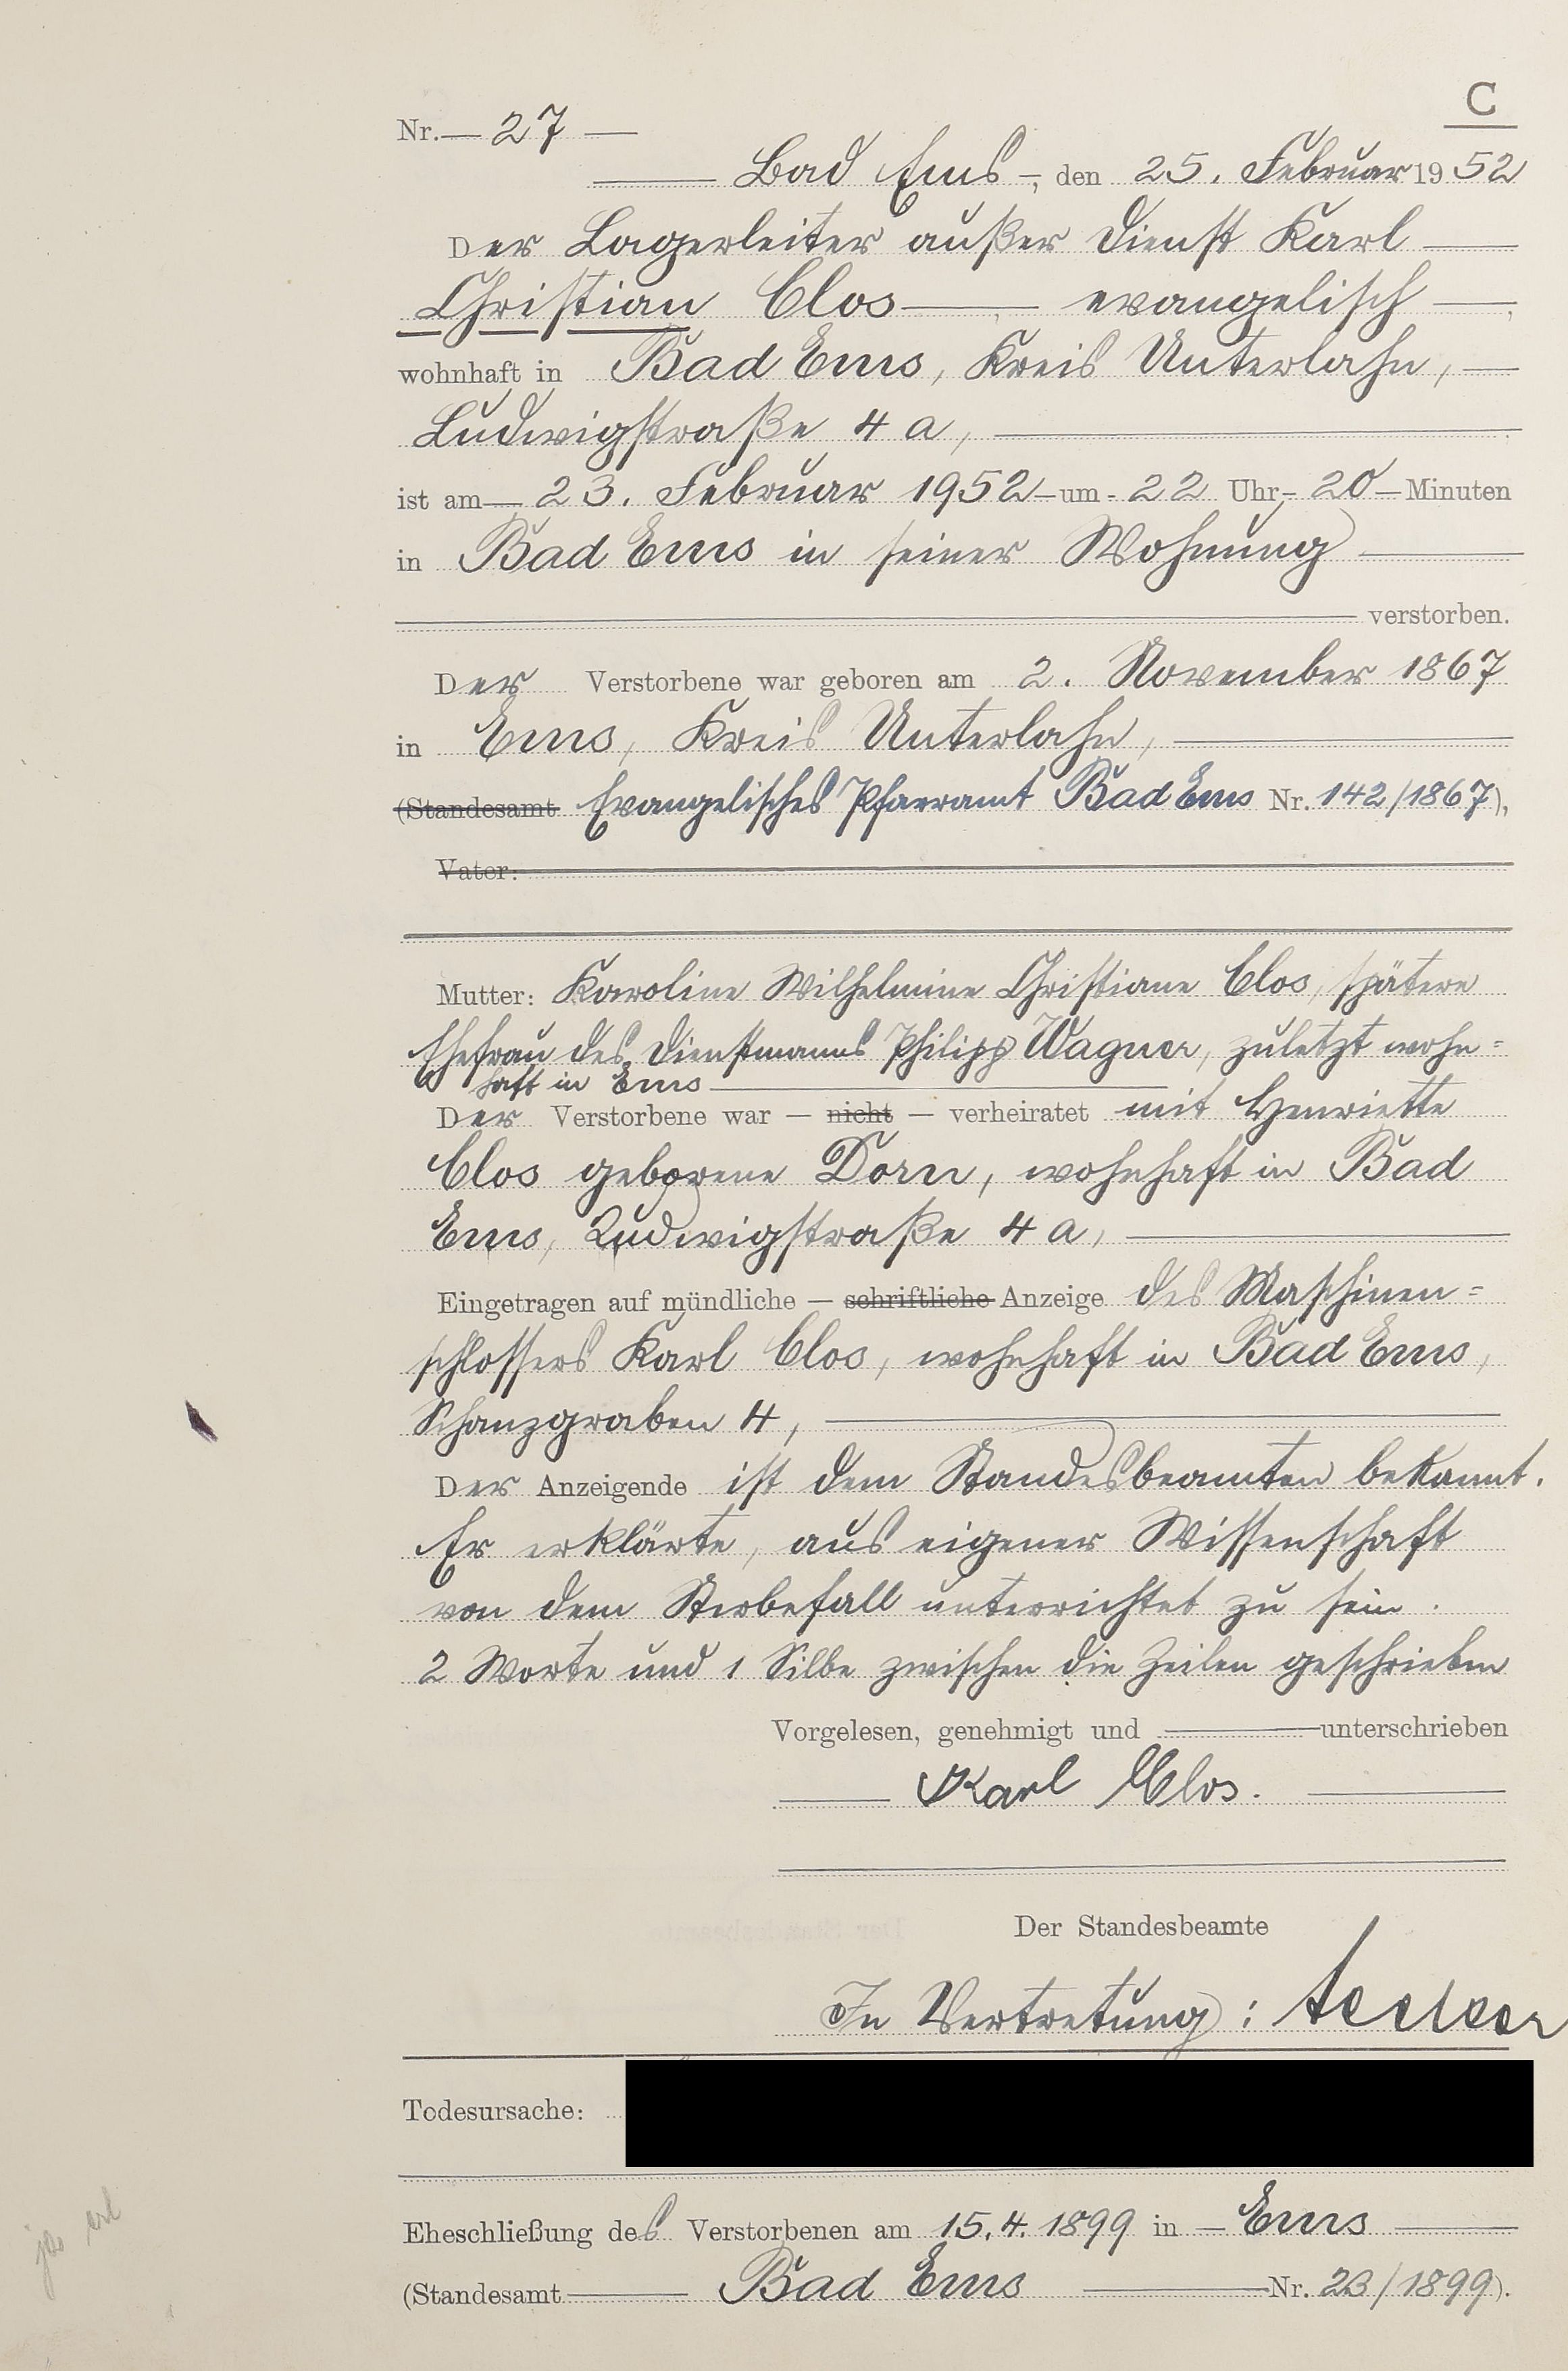 C
Nr. 27
Bad Ems, den 25. Februar 1952
Der Lagerleiter außer Dienst Karl
Christian Clos evangelisch,
wohnhaft in Bad Ems, Kreis Unterlahn,
Ludwigstraße 4 a,
ist am 23. Februar 1952 um 22 Uhr 20 Minuten
in Bad Ems in seiner Wohnung
verstorben.
Der Verstorbene war geboren am 2. November 1867
in Ems, Kreis Unterlahn,
(Standesamt Evangelisches Pfarramt Bad Ems Nr. 142/1867),
Vater:
Mutter: Karoline Wilhelmine Christiane Clos, spätere
Ehefrau des Dienstmanns Philipp Wagner, zuletzt wohn=
haft in Ems
Der Verstorbene war — nicht — verheiratet mit Henriette
Clos geborene Dorn, wohnhaft in Bad
Ems, Ludwigstraße 4 a,
Eingetragen auf mündliche — schriftliche Anzeige des Maschinen=
schlossers Karl Clos, wohnhaft in Bad Ems,
Schanzgraben 4,
Der Anzeigende ist dem Standesbeamten bekannt.
Er erklärte, aus eigener Wissenschaft
von dem Sterbefall unterrichtet zu sein.
2 Worte und 1 Silbe zwischen die Zeilen geschrieben
Vorgelesen, genehmigt und unterschrieben
Karl Clos.
Der Standesbeamte
In Vertretung:
Todesursache:
Eheschließung des Verstorbenen am 15.4.1899 in Ems
(Standesamt Bad Ems Nr. 23/1899).